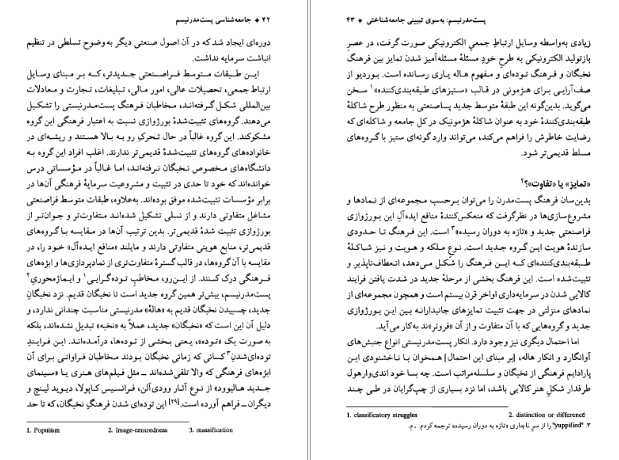 ۴۲ ♦ جامعه‌شناسی پست‌مدرنیسم
دوره‌ای ایجاد شد که در آن اصول صنعتی دیگر به‌وضوح تسلطی در تنظیم
انباشت سرمایه نداشت.
این طبقات متوسط فراصنعتی جدیدتر، که بر مبنای وسایل
ارتباط جمعی، تحصیلات عالی، امور مالی، تبلیغات، تجارت و معادلات
بین‌المللی شکل گرفته‌اند، مخاطبان فرهنگ پست‌مدرنیستی را تشکیل
می‌دهند. گروه‌های تثبیت‌شدهٔ بورژوازی نسبت به اعتبار فرهنگی این گروه
مشکوکند. این گروه غالباً در حال تحرکی رو به بالا هستند و ریشه‌ای در
خانواده‌های گروه‌های قدیمی‌تر ندارند. اغلب افراد این گروه به
دانشگاه‌های مخصوص نخبگان نرفته‌اند، اما غالباً در مؤسساتی درس
خوانده‌اند که خود تا حدی در تثبیت و مشروعیت سرمایهٔ فرهنگی آن‌ها در
برابر مؤسسات تثبیت‌شده موفق بوده‌اند. به‌علاوه، طبقات متوسط فراصنعتی
مشاغل متفاوتی دارند و از نسلی تشکیل شده‌اند متفاوت‌تر و جوان‌تر از
بورژوازی تثبیت شدهٔ قدیمی‌تر. بدین ترتیب آن‌ها در مقایسه با گروه‌های
قدیمی‌تر، منابع هویتی متفاوتی دارند و مایلند «منافع ایده‌آل» خود را، در
مقایسه با آن گروه‌ها، در قالب گسترهٔ متفاوت‌تری از نمادپردازی‌ها و ابژه‌های
فرهنگی درک کنند. از این‌رو، مخاطب توده‌گرایی۱ و ایماژمحوری۲
پست‌مدرنیسم، بیش‌تر همین گروه جدید است تا نخبگان قدیم. نزد نخبگان
جدید، چسبیدن نخبگان قدیم به «هالهٔ» مدرنیستی مناسبت چندانی ندارد، و
دلیل آن این است که «نخبگان» جدید، عملاً به «نخبه» تبدیل نشده‌اند، بلکه
به صورت یک «توده»، یعنی بخشی از توده‌ها، درآمده‌اند. این فرایند
توده‌ای‌شدن۳ کسانی که زمانی نخبگان بودند مخاطبان فراوانی برای آن
ابژه‌های فرهنگی که والا تلقی‌شده‌اند ــ مثل فیلم‌های هنری یا «سینمای
جدید هالیوود» از نوع آثار وودی‌آلن، فرانسیس کاپولا، دیوید لینچ و
دیگران ــ فراهم آورده است.[۲۹] این توده‌ای شدن فرهنگِ نخبگان، که تا حد
1. Populism 2. Image-centredness 3. massification
پست‌مدرنیسم: به‌سوی تبیینی جامعه‌شناختی ♦ ۴۳
زیادی به‌واسطه وسایل ارتباط جمعی الکترونیکی صورت گرفت، در عصر
بازتولید الکترونیکی به طرح خودِ مسئلهٔ مسئله‌آمیز شدن تمایز بین فرهنگ
نخبگان و فرهنگ توده‌ای و مفهوم هاله یاری رسانده است. بوردیو از
صف‌آرایی برای هژمونی در قالب «ستیزهای طبقه‌بندی‌کننده»۱ سخن
می‌گوید. بدین‌گونه این طبقهٔ متوسط جدید پساصنعتی به منظور طرح شاکلهٔ
طبقه‌بندی‌کنندهٔ خود به عنوان شاکلهٔ هژمونیک در کل جامعه و شاکله‌ای که
رضایت خاطرش را فراهم می‌کند، می‌تواند وارد گونه‌ای ستیز با گروه‌های
مسلط قدیمی‌تر شود.
«تمایز» یا «تفاوت»؟۲
بدین‌سان فرهنگ پست‌مدرن را می‌توان برحسب مجموعه‌ای از نمادها و
مشروع‌سازی‌ها در نظرگرفت که منعکس‌کنندهٔ منافع ایده‌آل این بورژوازی
فراصنعتی جدید و «تازه به دوران رسیده»۳ است. این فرهنگ تا حدودی
سازندهٔ هویت این گروه جدید است. نوع ملکه و هویت و نیز شاکلهٔ
طبقه‌بندی‌کننده‌ای که این فرهنگ را شکل می‌دهد، انعطاف‌ناپذیر و
تثبیت‌شده است. این فرهنگ بخشی از مرحلهٔ جدید در شدت یافتن فرایند
کالایی شدن در سرمایه‌داری اواخر قرن بیستم است و همچون مجموعه‌ای از
نمادهای منزلتی در جهت تثبیت تمایزهای جانبدارانه بین این بورژوازی
جدید و گروه‌هایی که با آن متفاوت و از آن «فروتر»ند به‌کار می‌آید.
اما احتمال دیگری نیز وجود دارد. انکار پست‌مدرنیستی انواع جنبش‌های
آوانگارد و انکار هاله، [بر مبنای این احتمال] همخوان با ناخشنودی این
پارادایم فرهنگی از نخبگان و سلسله‌مراتب است. چه بسا خود اندی‌وارهول
طرفدار شکل هنر کالایی باشد، اما نزد بسیاری از چپ‌گرایان در طی چند
1. classificatory struggles 2. distinction or difference
۳. "yuppified" را از سر ناچاری «تازه به دوران رسیده» ترجمه کردم. ـ م.